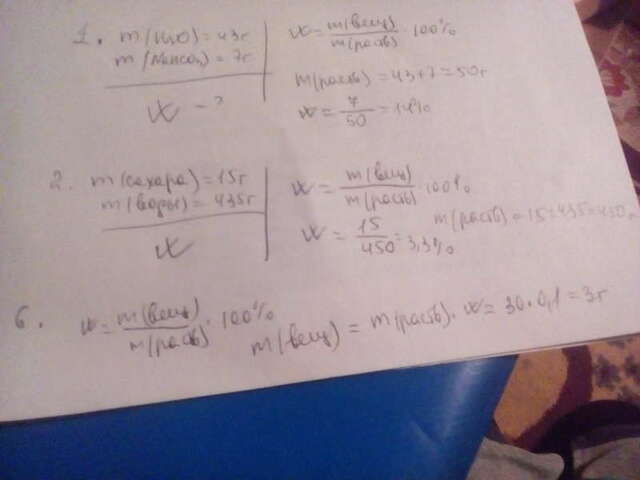 1. m(H₂O) = 43г
m(NaHCO₃) = 7г
W - ?
W = m(вещ)/m(раств) · 100%
m(раств) = 43+7 = 50г
W = 7/50 = 14%
2. m(сахара) = 15г
m(воды) = 435г
W
W = m(вещ)/m(раств) · 100%
W = 15/450 = 3,3% m(раств) = 15+435=450г
6. W = m(вещ)/m(раств) · 100%
m(вещ) = m(раств) · W = 30 · 0,1 = 3г